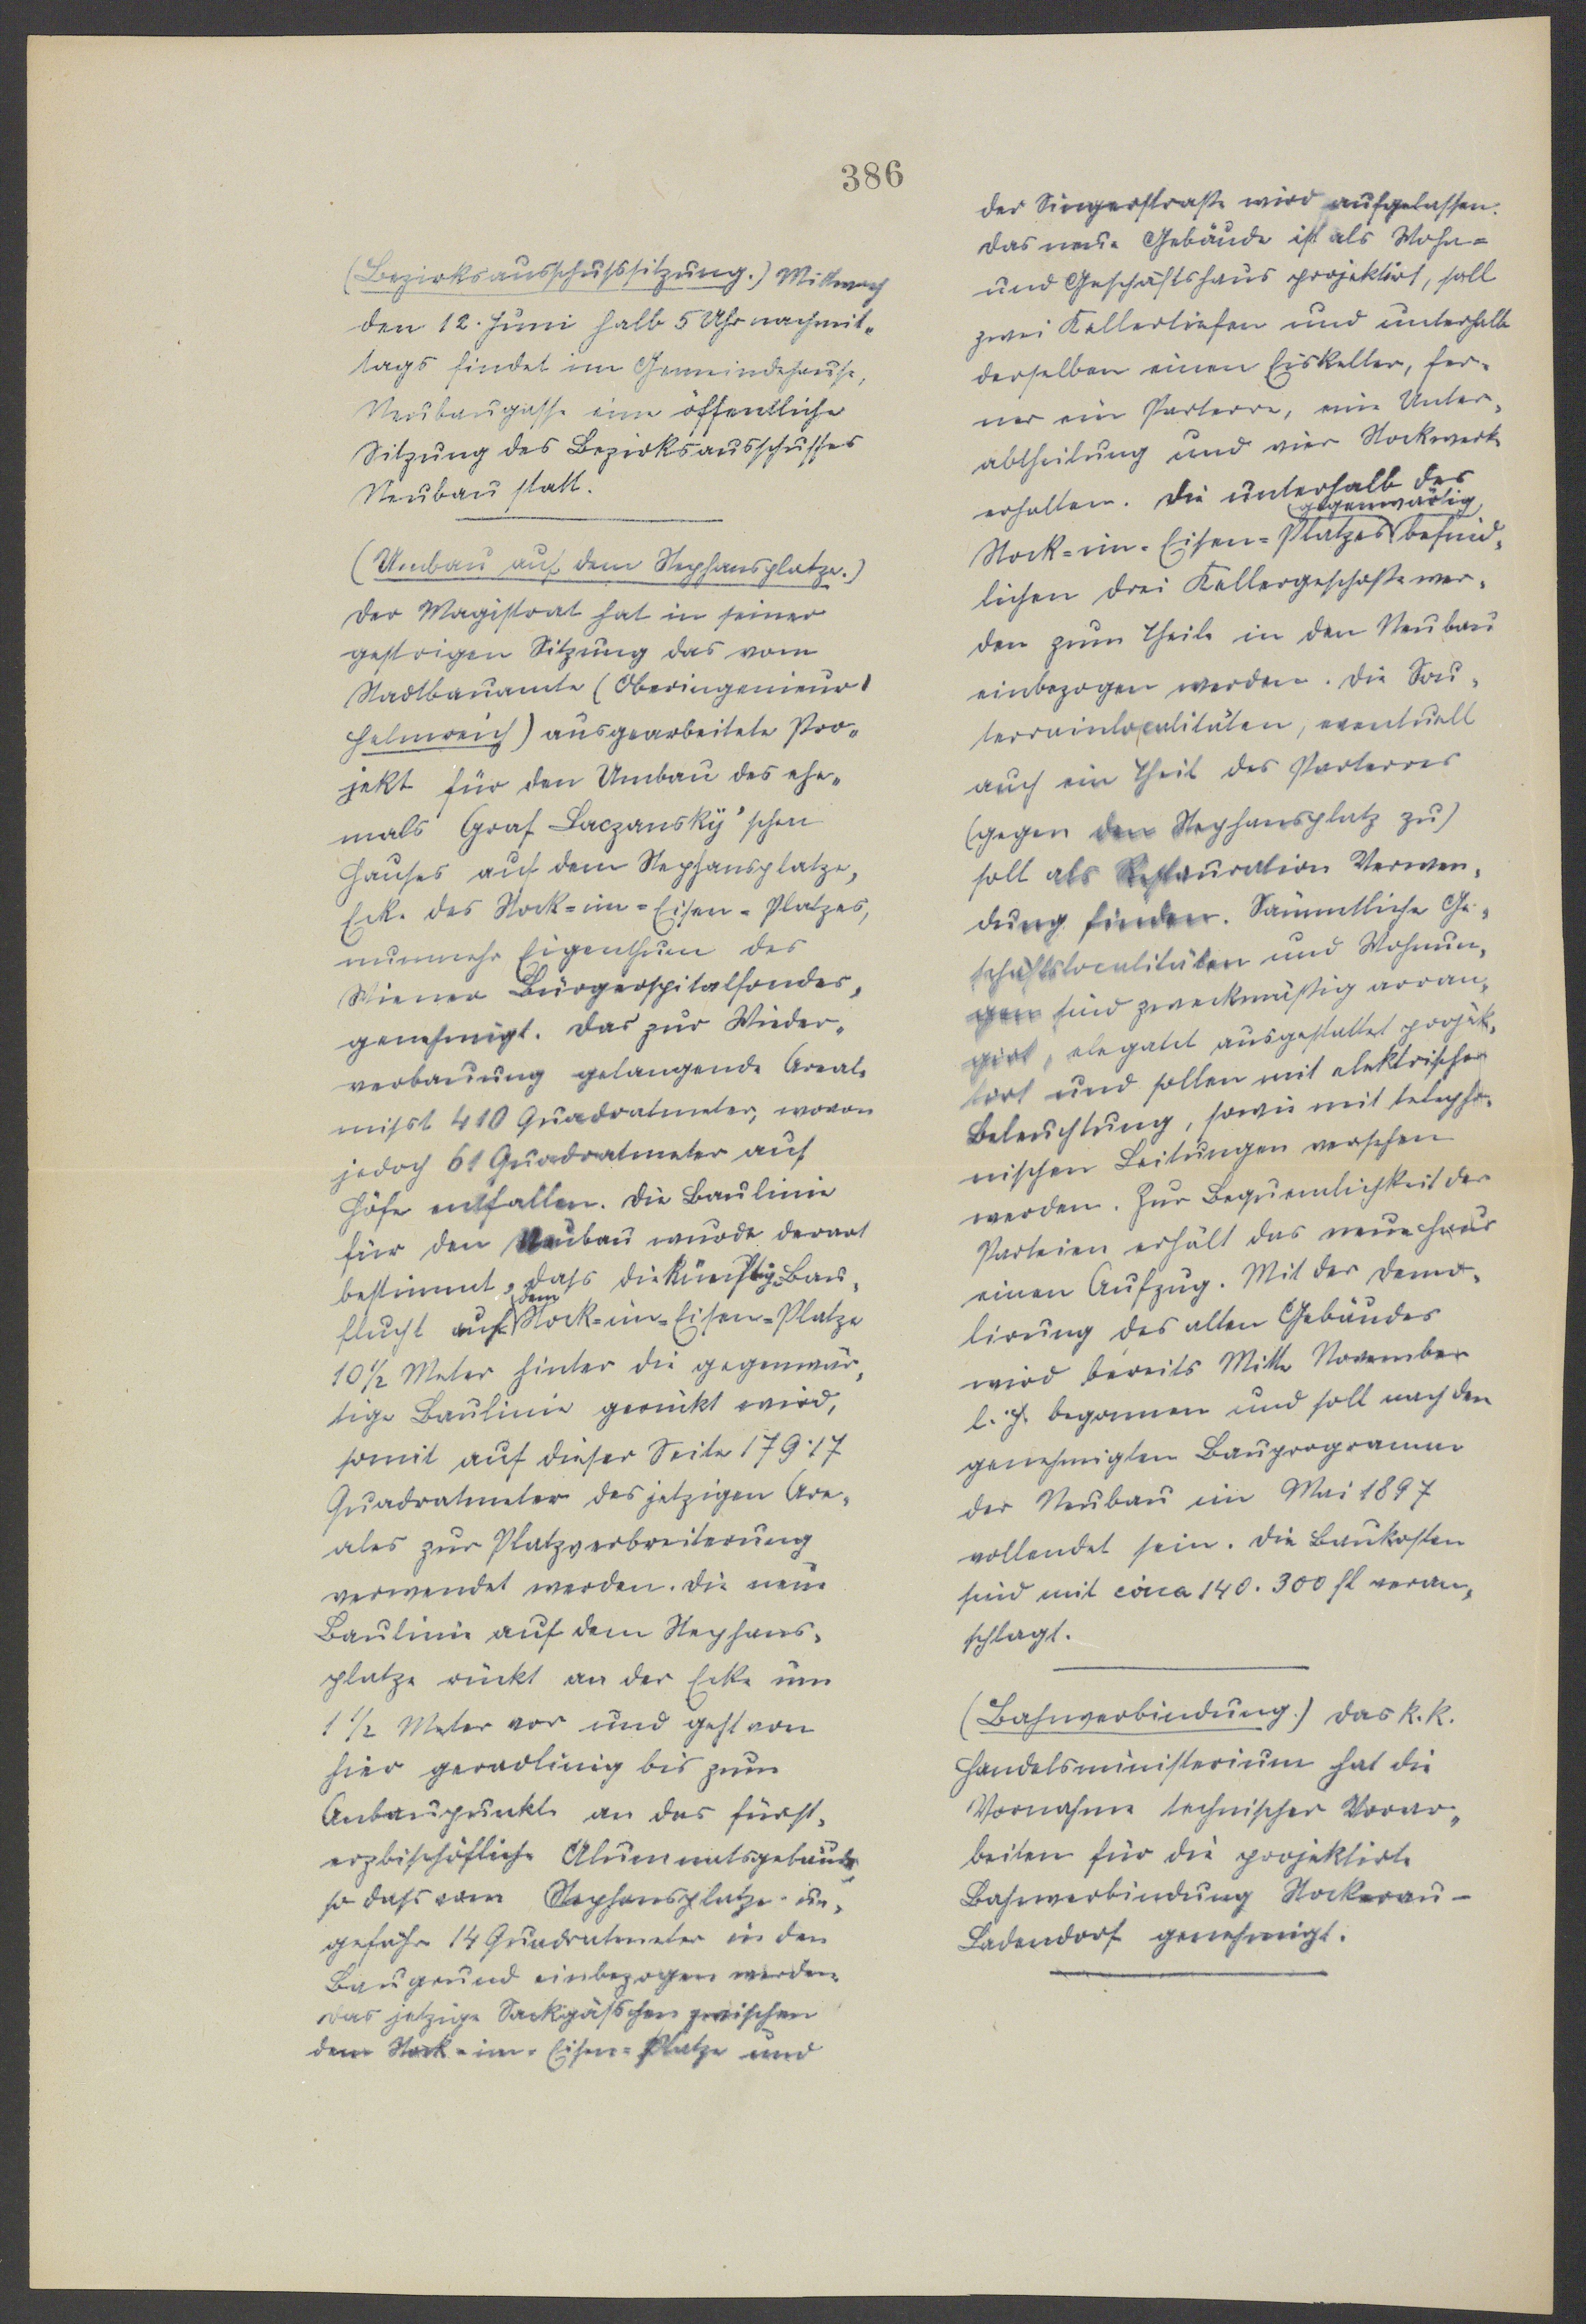 386
(Bezirksausschußsitzung.) Mittwoch
den 12. Juni halb 5 Uhr nachmit=
tags findet im Gemeindehause,
Neubaugasse eine öffentliche
Sitzung des Bezirksausschusses
Neubau statt.
(Umbau auf dem Stephansplatze.)
Der Magistrat hat in seiner
gestrigen Sitzung das vom
Stadtbauamte (Oberingenieur
Helmreich) ausgearbeitete Pro=
jekt für den Umbau des ehe=
mals Graf Laczansky'schen
Hauses auf dem Stephansplatze,
Ecke des Stock=im=Eisen=Platzes,
nunmehr Eigenthum des
Wiener Bürgerspitalfondes,
genehmigt. Das zur Wieder=
verbauung gelangende Areale
mißt 410 Quadratmeter, wovon
jedoch 61 Quadratmeter auf
Höfe entfallen. Die Baulinie
für den Neubau wurde derart
bestimmt, daß die künftige Bau=
flucht auf dem Stock=im=Eisen=Platze
10 1/2 Meter hinter die gegenwär=
tige Baulinie gerückt wird,
somit auf dieser Seite 179·17
Quadratmeter des jetzigen Are=
ales zur Platzverbreiterung
verwendet werden. Die neue
Baulinie auf dem Stephans=
platze rückt an der Ecke um
1 1/2 Meter vor und geht von
hier geradlinig bis zum
Anbaupunkte an das fürst=
erzbischöfliche Alumnatsgebäude
so daß vom Stephansplatze un=
gefähr 14 Quadratmeter in den
Baugrund einbezogen werden.
Das jetzige Sackgäßchen zwischen
dem Stock=im=Eisen=Platze und
der Singerstraße wird aufgelassen.
Das neue Gebäude ist als Wohn=
und Geschäftshaus projektirt, soll
zwei Kellertiefen und unterhalb
derselben einen Eiskeller, fer=
ner ein Parterre, eine Unter=
abtheilung und vier Stockwerke
erhalten. Die unterhalb des
Stock=im=Eisen=Platzes gegenwärtig befind=
lichen drei Kellergeschoße wer=
den zum Theile in den Neubau
einbezogen werden. Die Sou=
terrainlocalitäten, eventuell
auch ein Theil des Parterres
(gegen den Stephansplatz zu)
soll als Restauration Verwen=
dung finden. Sämmtliche Ge=
schäftslocalitäten und Wohnun=
gen sind zweckmäßig arran=
girt, elegatet ausgestattet projek=
tirt und sollen mit elektrischer
Beleuchtung, sowie mit telepho=
nischen Leitungen versehen
werden. Zur Bequemlichkeit der
Parteien erhält das neue Haus
einen Aufzug. Mit der Demo=
lirung des alten Gebäudes
wird bereits Mitte November
l. J. begonnen und soll nach dem
genehmigten Bauprogramme
der Neubau im Mai 1897
vollendet sein. Die Baukosten
sind mit circa 140.300 fl veran=
schlagt.
(Bahnverbindung.) Das k. k.
Handelsministerium hat die
Vornahme technischer Vorar=
beiten für die projektirte
Bahnverbindung Stockerau –
Ladendorf genehmigt.